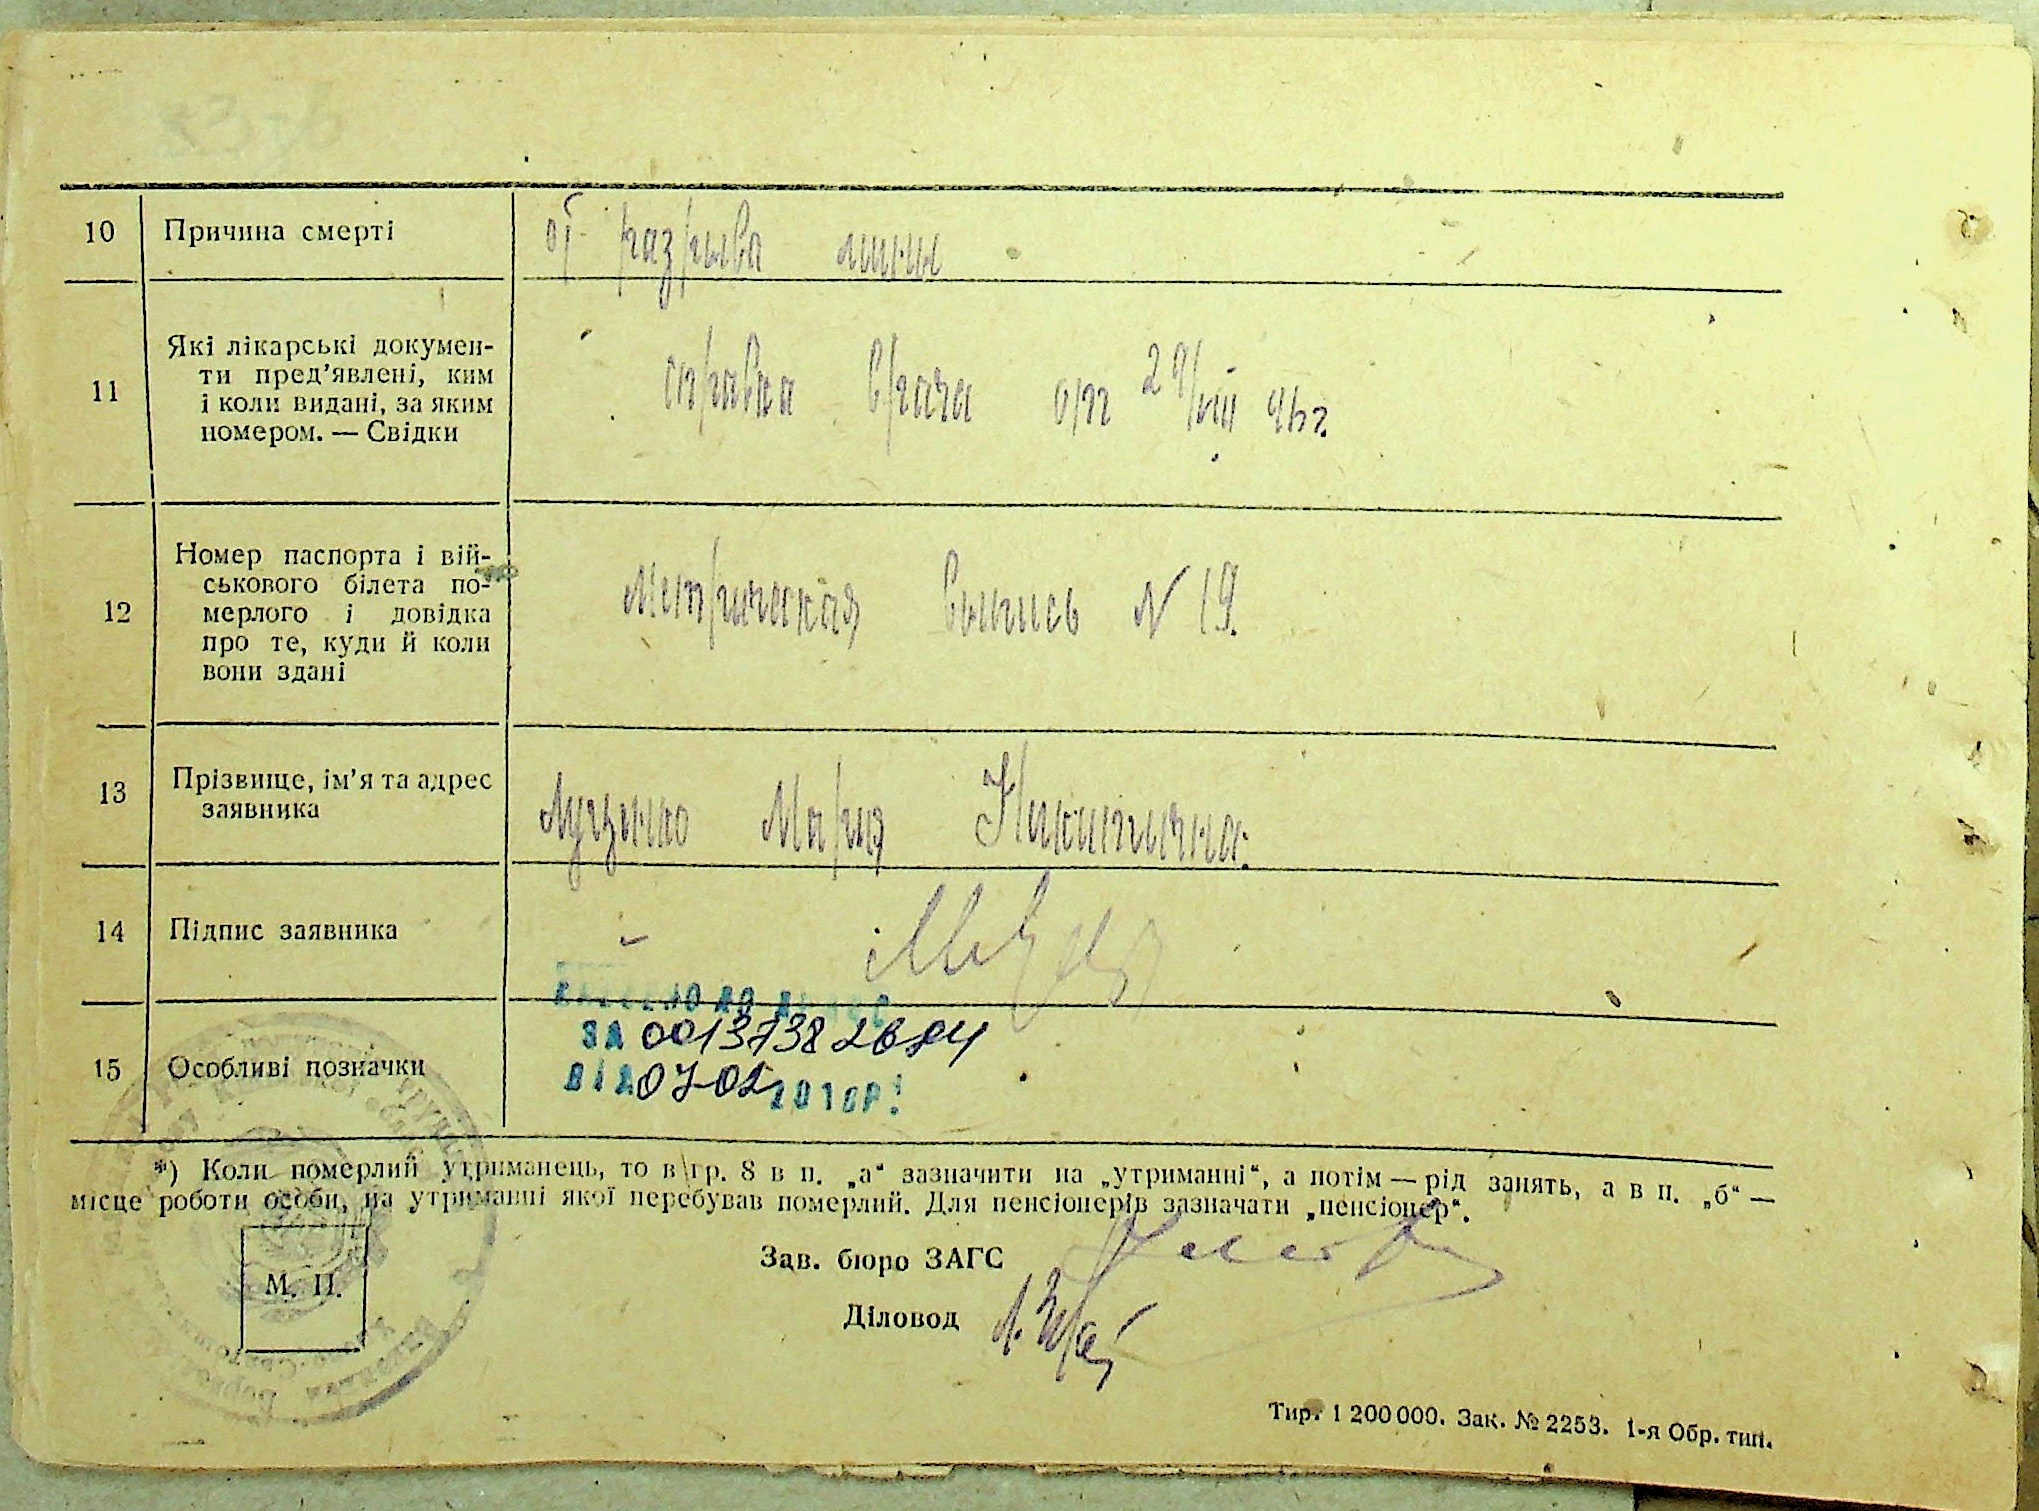 10 Причина смерті от разрыва мины
11 Які лікарські докумен-
ти пред’явлені, ким
і коли видані, за яким
номером. — Свідки
справка врача от 29/VIII 46г.
12 Номер паспорта і вій-
ськового білета по-
мерлого і довідка
про те, куди й коли
вони здані
Метрическая выпись N 19.
13 Прізвище, ім’я та адрес
заявника
Луценко Мария Никитична.
14 Підпис заявника
15 Особливі позначки
ЗА 00137382684
ВІД 07-02 2016Р.
*) Коли померлий утриманець, то в гр. 8 в п. „а“ зазначити на „утриманні“, а потім — рід занять, а в п. „б“ —
місце роботи особи, на утриманні якої перебував померлий. Для пенсіонерів зазначати „пенсіонер“.
Зав. бюро ЗАГС
М. П.
Діловод
Тир. 1 200 000. Зак. № 2253. 1-я Обр. тип.